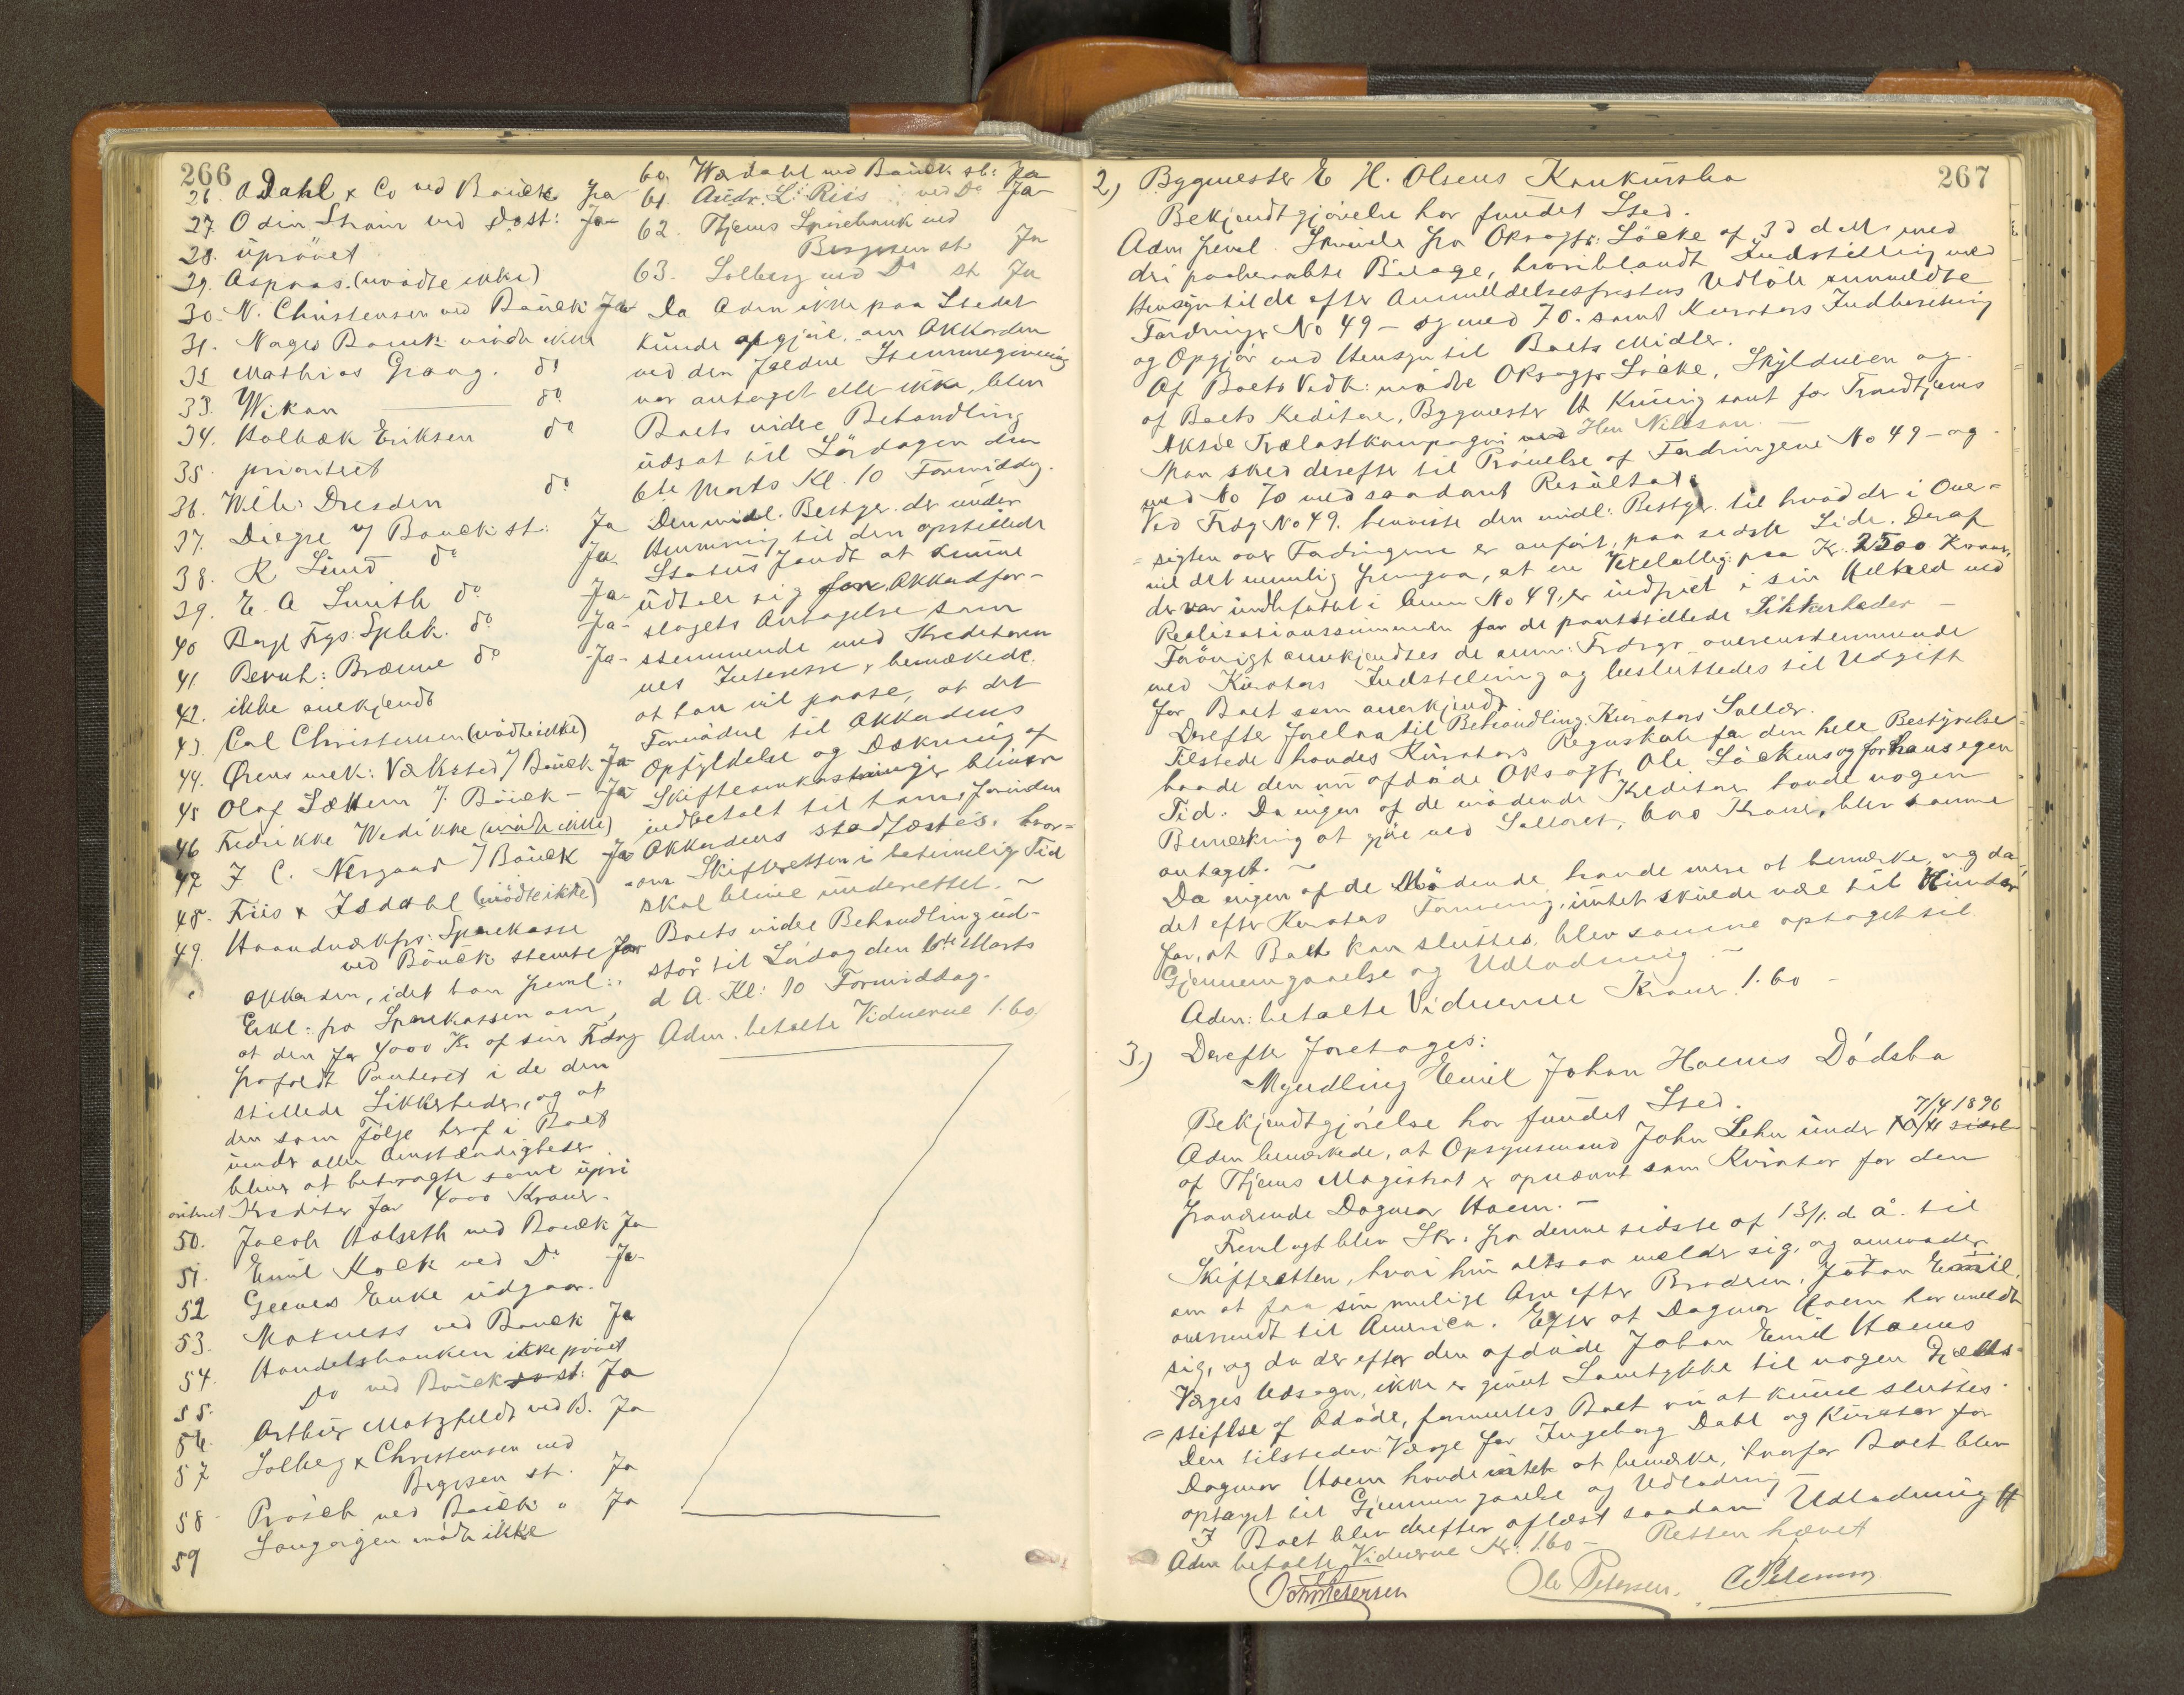 266
26. O Dahl & Co ved Bauck Ja
27. Odin Strøm ved Do st: Ja
28. uprövet
29. Aspaas. (mödte ikke)
30. N. Christensen ved Bauck Ja
31. Nagos Bauck mödte ikke
32 Mathias Graag. do
33. Wikan do
34. Holbæk Eriksen do
35. prioritet
36. Wilh: Dresden do
37. Diegre v/ Bauck st: Ja
38. R Lund do Ja
39. E. A Smith do Ja
40 Borgl Frgs: Spbk. do Ja
41 Bernh: Brænne do Ja
42. ikke anerkjendt
43. Carl Christensen (mödte ikke)
44. Ørens mek: Værksted v/ Bauck Ja
45 Olaf Sættem v/ Bauck - Ja
46 Fredrikke Wedikke (mödte ikke)
47 J C. Nergaard v/ Bauck Ja
48. Friis & Isdahl (mödte ikke)
49. Haandværkfrs: Sparekasse
ved Bauck stemte for
Akkorden, idet han freml:
Erkl: fra Sparekassen om,
at den for 4000 Kr af sin Fdrg
frafaldt Panteret i de den
stillede Sikkerheder, og at
den som Fölge heraf i Boet
under alle Omstændigheder
bliver at betragte som upri
oriteret Kreditor for 4000 Kroner.
50. Jacob Halseth ved Bauck Ja
51. Emil Kock ved Do Ja
52 Greeves Enke udgaar.
53. Moxness ved Bauck Ja
54. Handelsbanken ikke prövet
55. Do ved Bauck st: Ja
56. Arthur Motzfeldt ved B. Ja
57 Solberg & Christensen ved
Bergersen st. Ja
58 Prösch ved Bauck " Ja
59 Langörgen mödte ikke
60. Wærdahl ved Bauck st: Ja
61. Andr. L. Riis ved Do Ja
62. Thjems Sparebank ved
Bergersen st Ja
63. Solberg ved Do st Ja
Da Adm ikke paa Stedet
kunde opgjöre, om Akkorden
ved den faldne Stemmegivning
var antaget eller ikke, blev
Boets videre Behandling
udsat til Lördagen den
6te Marts Kl. 10 Formiddg.
Den midl. Bestyr. der under
Henvisning til den opstillede
Status fandt at kunne
udtale sig for Akkordfor-
slagets Antagelse som
stemmende med Kreditorer
nes Interesse, bemærkede.
at han vil paase, at det
Fornödne til Akkordens
Opfyldelse og Dækning af
Skifteomkostninger bliver
indbetalt til ham, forinden
Akkordens stadfæstes. hvor-
om Skifteretten i betimelig Tid
skal blive underrettet. ~
Boets videre Behandling ud-
står til Lördag den 6te Marts
d A. Kl: 10 Formiddag.
Adm. betalte Vidnerne 1.60
267
2) Bygmester E H. Olsens Konkursbo
Bekjendtgjörelse har fundet Sted.
Adm freml. Skrivelse fra Oksagfr: Löcke af 3 d M med
deri paaberaabte Bilage, hvoriblandt Indstilling med
Hensyn til de efter Anmeldelsesfristens Udlöb anmeldte
Fordringer No 49 - og med 70. samt Kurators Indberetning
og Opgjör med Hensyn til Boets Midler.
Af Boets Vedk: mödte Oksagfr Löcke, Skyldneren og
af Boets Kreditorer, Bygmester H Kuenig samt for Trondhjems
Aktie Trælastkompagni ved Hr Nilsson. -
Man skred derefter til Prövelse af Fordringerne No 49 - og
med No 70 med saadant Resultat:
Ved Frdg No 49. henviste den midl: Bestyr. til hvad der i Over-
sigten over Fordringerne er anfört, paa sidste Side. Deraf
vil det nemlig fremgaa, at en Vexelobliq: paa Kr. 2500 Kroner,
der var indbefattet i Anm No 49, er indfriet i sin Helhed ved
Realisationssummen for de pantstillede Sikkerheder -
Forövrigt anerkjendtes de anm: Frdrgr overensstemmende
med Kurators Indstilling og besluttedes til Udgift
for Boet som anerkjendt
Derefter forelaa til Behandling Kurators Sallær.
Tilstede havdes Kurators Regnskab for den hele Bestyrelse
baade den nu afdöde Oksagfr Ole Löckens og for hans egen
Tid. Da ingen af de mödende Kreditorer havde nogen
Bemærkning at gjöre ved Salleret, 600 Kroner, blev samme
antaget. ~
Da ingen af de Mödende havde mere at bemærke, og da
det efter Kurators Formening, intet skulde være til Hinder
for, at Boet kan sluttes, blev samme optaget til
Gjennemgaaelse og Udlodning. -
Adm: betalte Vidnerne Kroner 1.60 -
3.) Derefter foretoges:
Myndling Emil Johan Hoems Dödsbo
Bekjendtgjörelse har fundet Sted.
7/4 1896
Adm bemærkede, at Opsynsmand John Lehn under
af Thjems Magistrat er opnævnt som Kurator for den
fraværende Dagmar Hoem. -
Fremlagt blev Skr. fra denne sidste af 13/1. d å. til
Skifteretten, hvori hun altsaa melder sig, og anmoder
om at faa sin mulige Arv efter Broderen, Johan Emil,
oversendt til America. Efter at Dagmar Hoem har meldt
sig, og da der efter den afdöde Johan Emil Hoems
Værges Udsagn, ikke er givet Samtykke til nogen Gjælds-
stiftelse af Afdöde, formentes Boet nu at kunne sluttes.
Den tilstedev: Værge for Ingeborg Dahl og Kurator for
Dagmar Hoem havde intet at bemærke, hvorfor Boet blev
optaget til Gjennemgaaelse og Udlodning -
I Boet blev derefter oplæst saadan Udlodning #
Adm betalte Vidnerne Kr: 1.60 - Retten hævet
Ole Petersen.